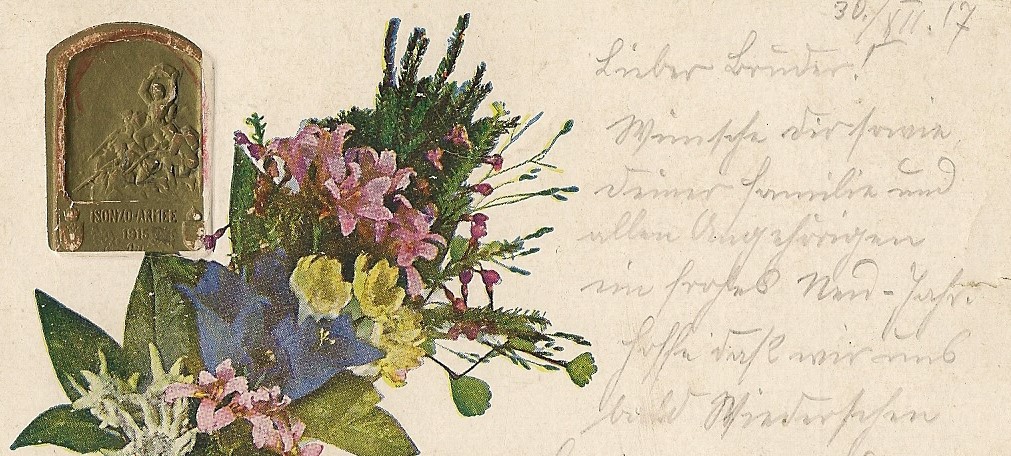 ISONZO-ARMEE
1915
30./XII.17
Lieber Bruder!
Wünsche dir sowie
deiner Familie und
allen Angehörigen
ein frohes Neu-Jahr.
Hoffe daß wir uns
bald Wiedersehen